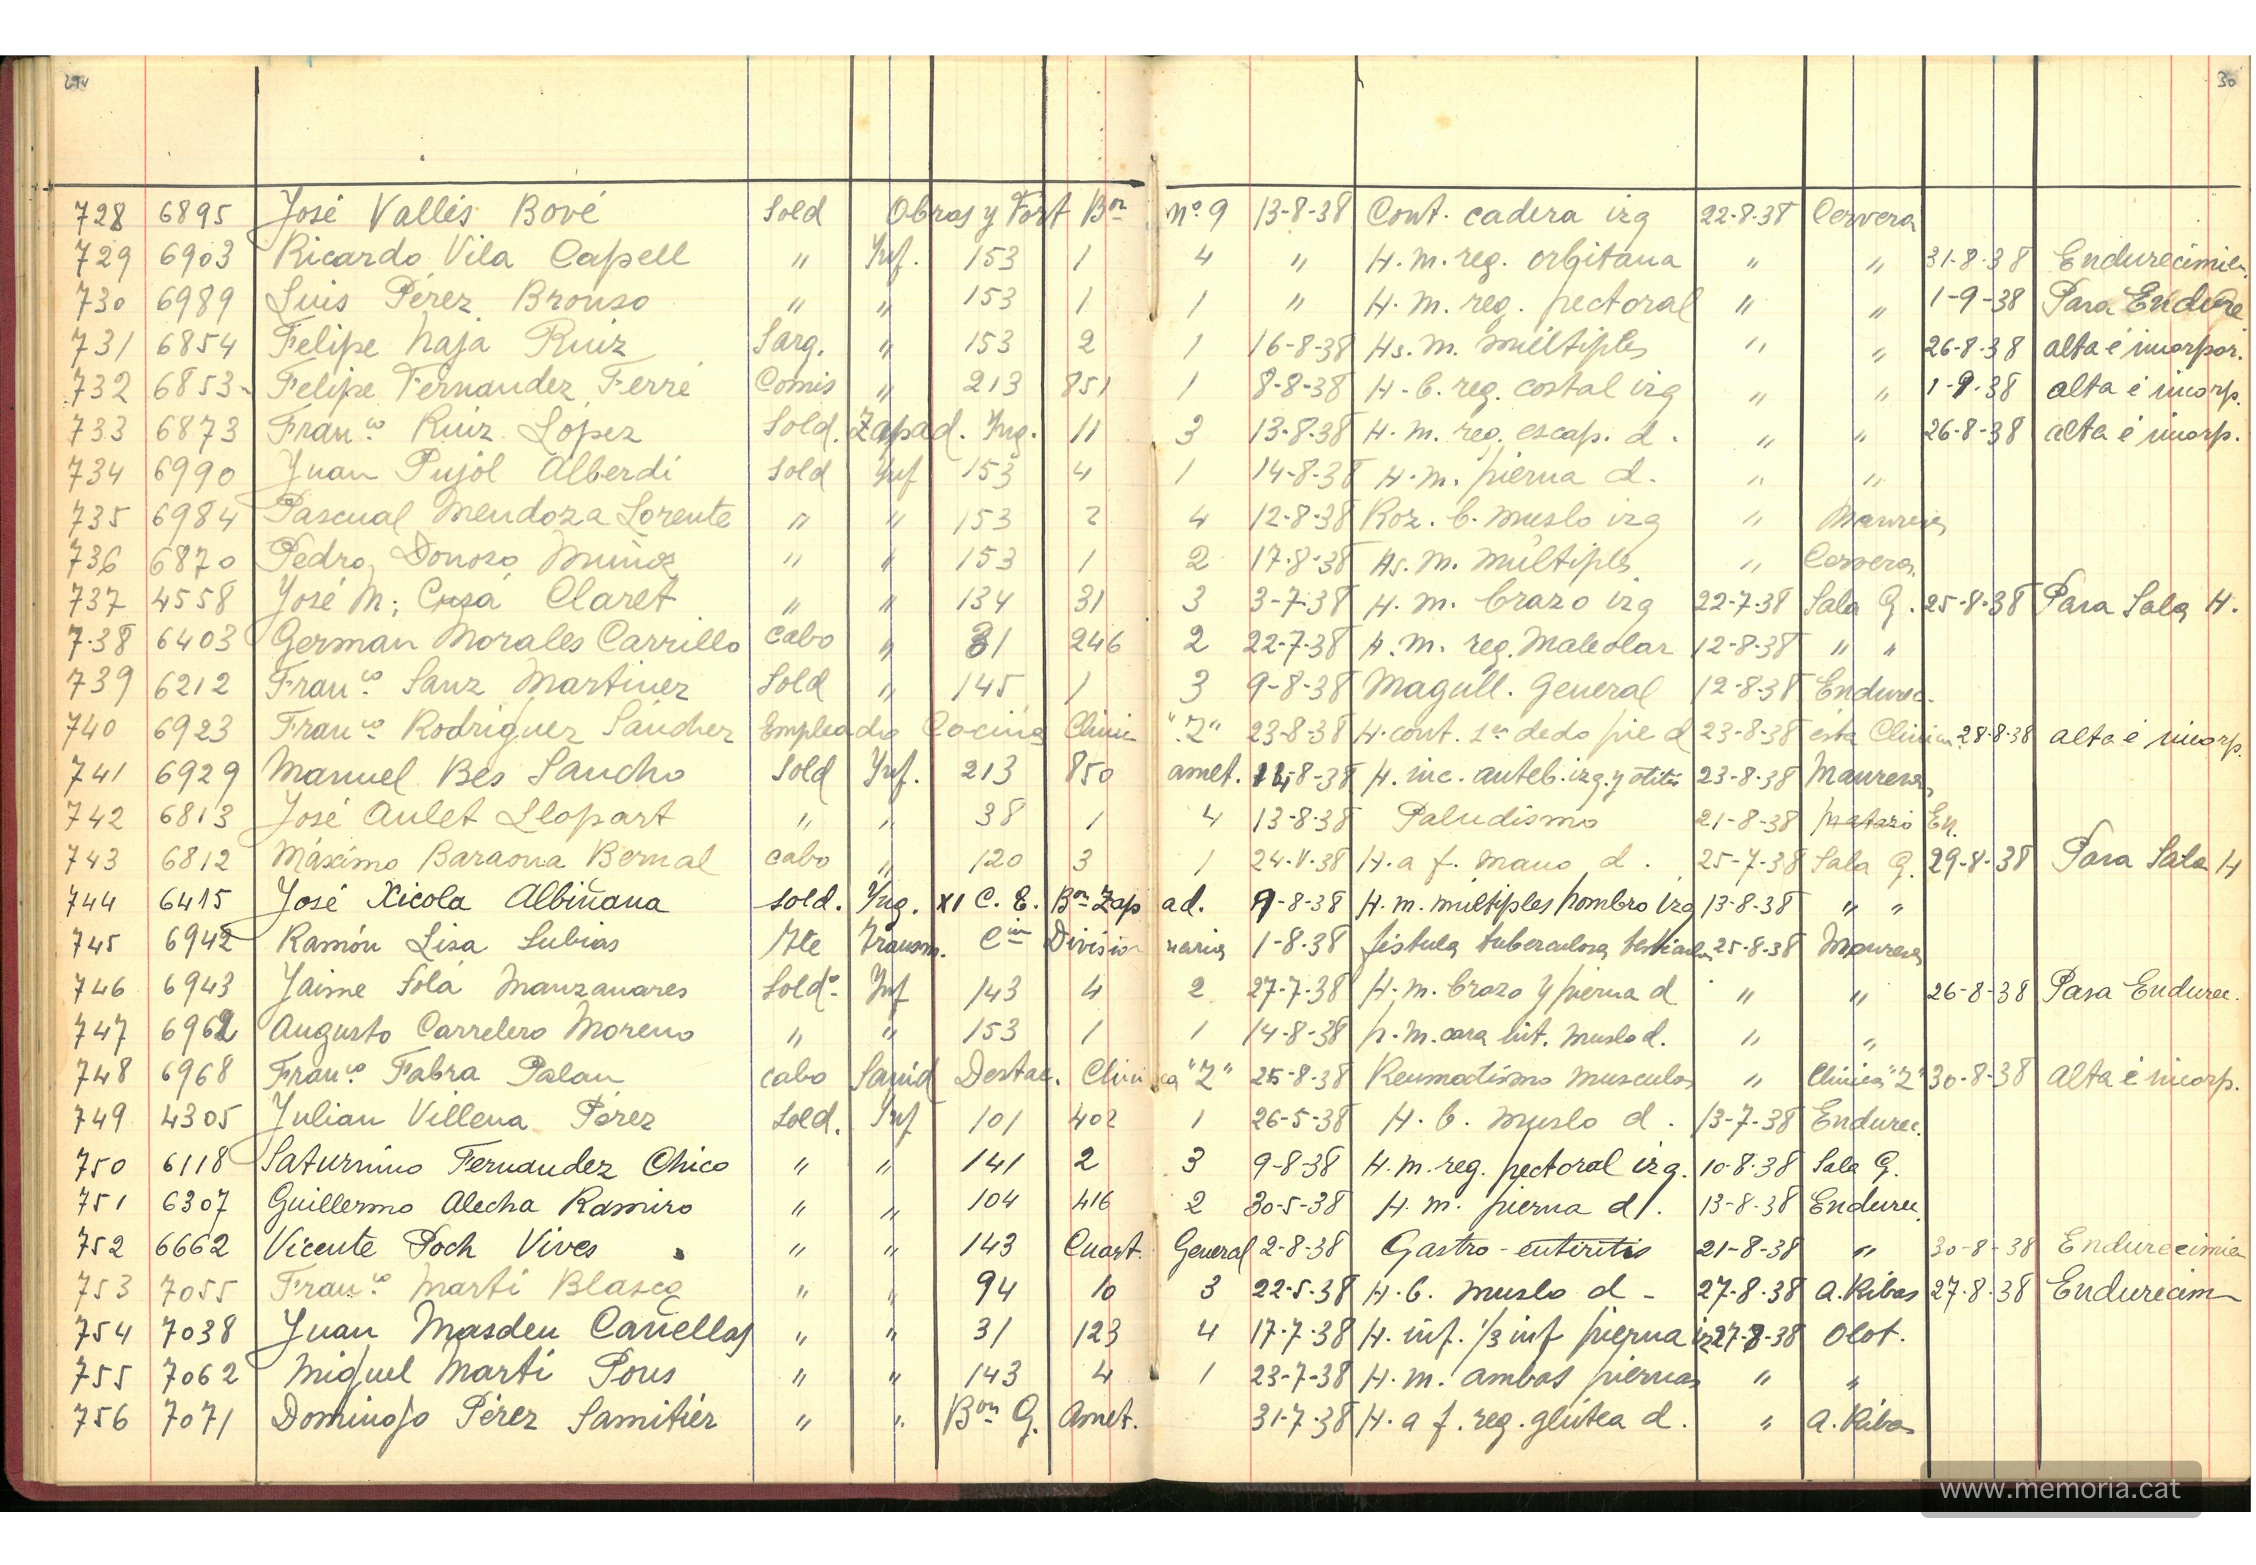 29v 30
728 6895 José Vallés Bové Sold Obras y Fort Bon nº 9 13-8-38 Cont. cadera izq 22-8-38 Cervera
729 6903 Ricardo Vila Capell " Inf. 153 1 4 " H. m. reg. orbitana " " 31-8-38 Endurecimien.
730 6989 Luis Pérez Bronso " " 153 1 1 " H. m. reg. pectoral " " 1-9-38 Para Endure
731 6854 Felipe Naja Ruiz Sarg. " 153 2 1 16-8-38 Hs. m. múltiples " " 26-8-38 alta é incorpor.
732 6853 Felipe Fernandez Ferré Comis " 213 851 1 8-8-38 H. b. reg. costal izq " " 1-9-38 alta é incorp.
733 6873 Franco. Ruiz López Sold. Zapad. Ing. 11 3 13-8-38 H. m. reg. escap. d. " " 26-8-38 alta é incorp.
734 6990 Juan Pujol Alberdi Sold Inf 153 4 1 14-8-38 H. m. pierna d. " "
735 6984 Pascual Mendoza Lorente " " 153 2 4 12-8-38 Roz. b. muslo izq " Manresa
736 6870 Pedro Donoso Muñoz " " 153 1 2 17-8-38 Hs. m. múltiples " Cervera
737 4558 José M; Cusá Claret " " 134 31 3 3-7-38 H. m. brazo izq 22-7-38 Sala G. 25-8-38 Para Sala H.
738 6403 German Morales Carrillo cabo " 31 246 2 22-7-38 H. m. reg. Maleolar 12-8-38 " "
739 6212 Franco. Sanz Martinez Sold " 145 1 3 9-8-38 Magull. General 12-8-38 Endurec.
740 6923 Franco. Rodríguez Sánchez Empleado Cocina Clinic "Z" 23-8-38 H. cont. 1er dedo pie d 23-8-38 ésta Clinica 28-8-38 alta é incorp.
741 6929 Manuel Bes Sancho Sold Inf. 213 850 amet. 14-8-38 H. inc. anteb. izq. y otitis 23-8-38 Manresa
742 6813 José Aulet Llopart " " 38 1 4 13-8-38 Paludismo 21-8-38 Mataró En.
743 6812 Máximo Baraona Bernal cabo " 120 3 1 24-V-38 H. a f. mano d. 25-7-38 Sala G. 29-8-38 Para Sala H
744 6415 José Xicola Albiñana Sold. Ing. XI C. E. Bon Zap ad. 9-8-38 H. m. múltiples hombro izq 13-8-38 " "
745 6942 Ramón Lisa Lubias Tte Transm. Cia Division naria 1-8-38 fístula tuberculosa testicular 25-8-38 Manresa
746 6943 Jaime Solá Manzanares Soldo. Inf 143 4 2 27-7-38 H. m. brazo y pierna d " " 26-8-38 Para Endurec.
747 6962 Augusto Carrelero Moreno " " 153 1 1 14-8-38 h. m. cara int. muslo d. " "
748 6968 Franco. Fabra Palau cabo Sanid Destac. Clini ca "Z" 25-8-38 Reumatismo musculos " Clinica "Z" 30-8-38 Alta é incorp.
749 4305 Julian Villena Pérez Sold. Inf 101 402 1 26-5-38 H. b. muslo d. 13-7-38 Endurec.
750 6118 Saturnino Fernandez Chico " " 141 2 3 9-8-38 H. m. reg. pectoral izq. 10-8-38 Sala G.
751 6307 Guillermo Alecha Ramiro " " 104 416 2 30-5-38 H. m. pierna d/. 13-8-38 Endurec.
752 6662 Vicente Poch Vives " " 143 Cuart. General 2-8-38 Gastro-entiritis 21-8-38 " 30-8-38 Endurecimien
753 7055 Franco. Marti Blasco " " 94 10 3 22-5-38 H. b. muslo d - 27-8-38 A. Ribas 27-8-38 Endurecim
754 7038 Juan Masdeu Cañellas " " 31 123 4 17-7-38 H. inf. 1/3 inf pierna iz 27-8-38 Olot.
755 7062 Miguel Marti Pous " " 143 4 1 23-7-38 H. m. ambas piernas " "
756 7071 Domingo Pérez Samitiér " " Bon G. Amet. 31-7-38 H. a f. reg. glútea d. " A. Ribas
www.memoria.cat